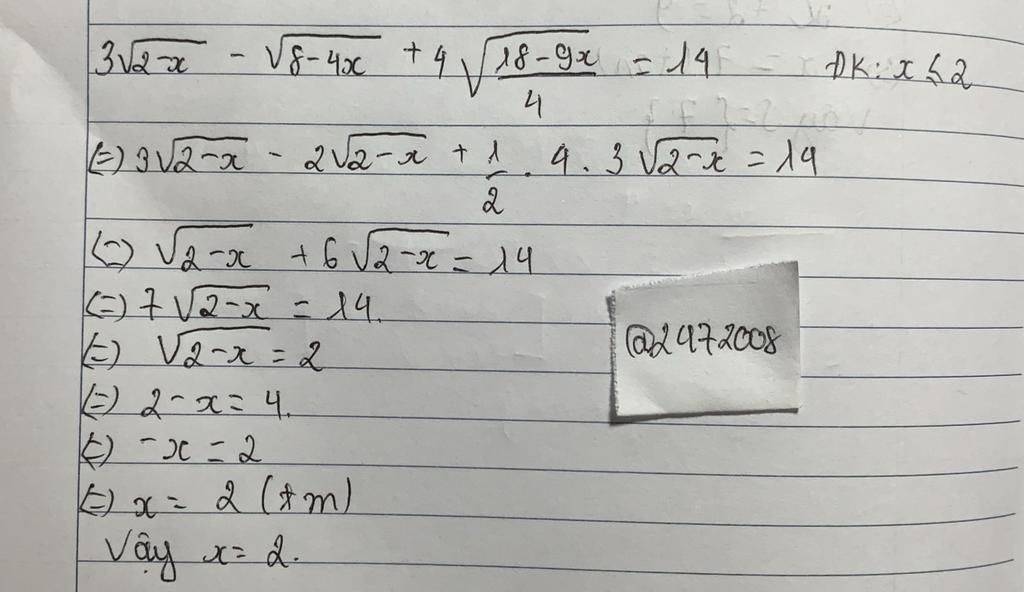 3√(2-x) - √(8-4x) + 4√((18-9x)/4) = 14 ĐK: x ≤ 2
(=) 3√(2-x) - 2√(2-x) + 1/2 . 4 . 3√(2-x) = 14
(=) √(2-x) + 6√(2-x) = 14
(=) 7√(2-x) = 14.
(=) √(2-x) = 2
(=) 2-x = 4.
(=) -x = 2
(=) x = 2 (tm)
Vậy x = 2.
@2472008